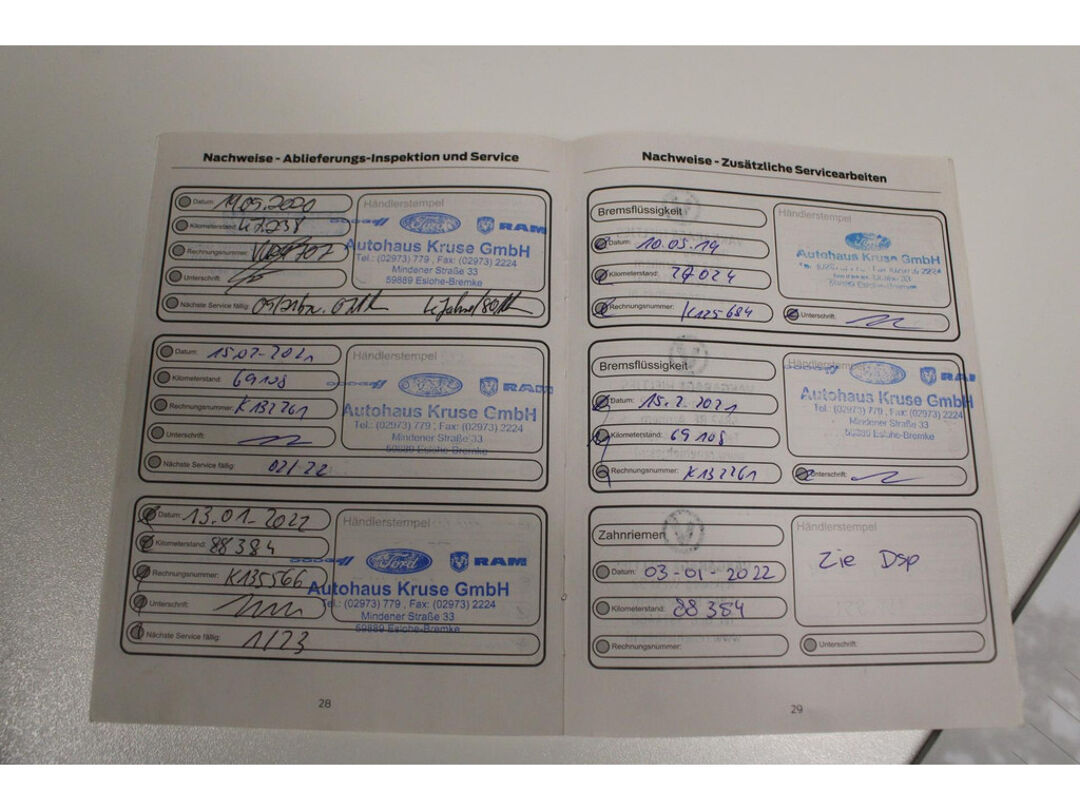 Nachweise - Ablieferungs-Inspektion und Service
Datum: 11.09.2020
Kilometerstand: 47.238
Rechnungsnummer:
Unterschrift:
Nächste Service fällig:
Händlerstempel
Ford RAM
Autohaus Kruse GmbH
Tel.: (02973) 779 , Fax: (02973) 2224
Mindener Straße 33
59889 Eslohe-Bremke
Datum: 15.02-2021
Kilometerstand: 69108
Rechnungsnummer: K132261
Unterschrift:
Nächste Service fällig: 02/22
Händlerstempel
Ford RAM
Autohaus Kruse GmbH
Tel.: (02973) 779 , Fax: (02973) 2224
Mindener Straße 33
59889 Eslohe-Bremke
Datum: 13.01-2022
Kilometerstand: 88384
Rechnungsnummer: K135566
Unterschrift:
Nächste Service fällig: 1/23
Händlerstempel
Ford RAM
Autohaus Kruse GmbH
Tel.: (02973) 779 , Fax: (02973) 2224
Mindener Straße 33
59889 Eslohe-Bremke
28
Nachweise - Zusätzliche Servicearbeiten
Bremsflüssigkeit
Datum: 10.05.19
Kilometerstand: 27024
Rechnungsnummer: K125684
Händlerstempel
Ford
Autohaus Kruse GmbH
Unterschrift:
Bremsflüssigkeit
Datum: 15.2.2021
Kilometerstand: 69108
Rechnungsnummer: K132261
Händlerstempel
Ford RAM
Autohaus Kruse GmbH
Tel.: (02973) 779 , Fax: (02973) 2224
Mindener Straße 33
59889 Eslohe-Bremke
Unterschrift:
Zahnriemen
Datum: 03-01-2022
Kilometerstand: 88384
Rechnungsnummer:
Händlerstempel
Zie Dsp
Unterschrift:
29